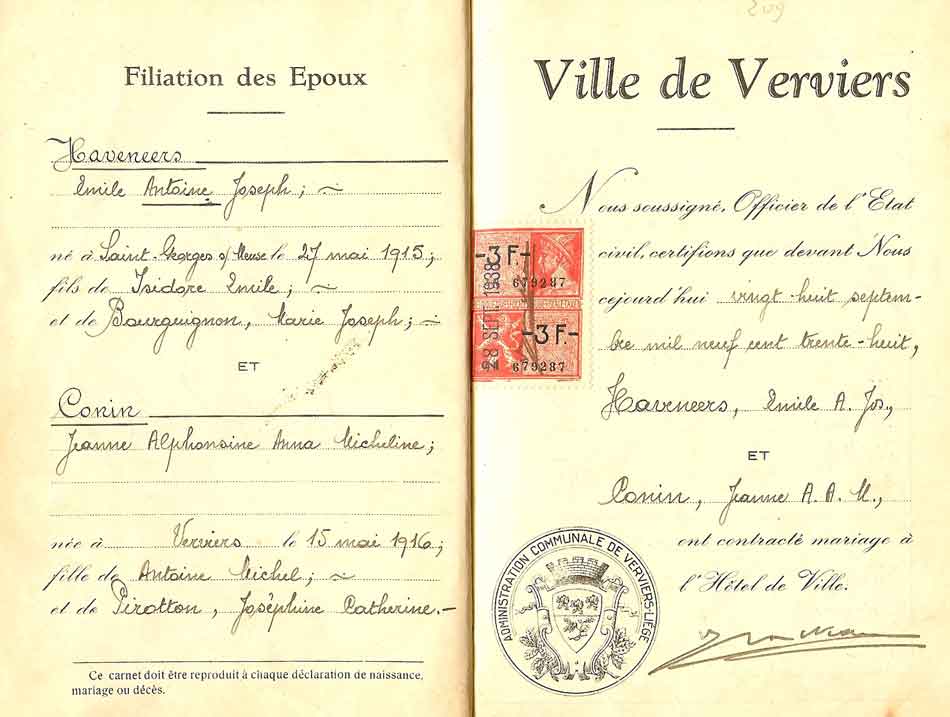 Filiation des Epoux
Haveneers
Emile Antoine Joseph;
né à Saint-Georges s/Meuse le 27 mai 1915;
fils de Isidore Emile;
et de Bourguignon, Marie Joseph;
ET
Conin
Jeanne Alphonsine Anna Micheline;
née à Verviers le 15 mai 1916;
fille de Antoine Michel;
et de Pirotton, Joséphine Catherine.-
Ce carnet doit être reproduit à chaque déclaration de naissance,
mariage ou décès.
209
Ville de Verviers
Nous soussigné, Officier de l'Etat
civil, certifions que devant Nous
cejourd'hui vingt-huit septem-
bre mil neuf cent trente-huit,
Haveneers, Emile A. Jos.,
ET
Conin, Jeanne A. A. M.,
ont contracté mariage à
l'Hôtel de Ville.
-3F.-
679287
28 SEPT 1938
-3F.-
679287
ADMINISTRATION COMMUNALE DE VERVIERS-LIÈGE